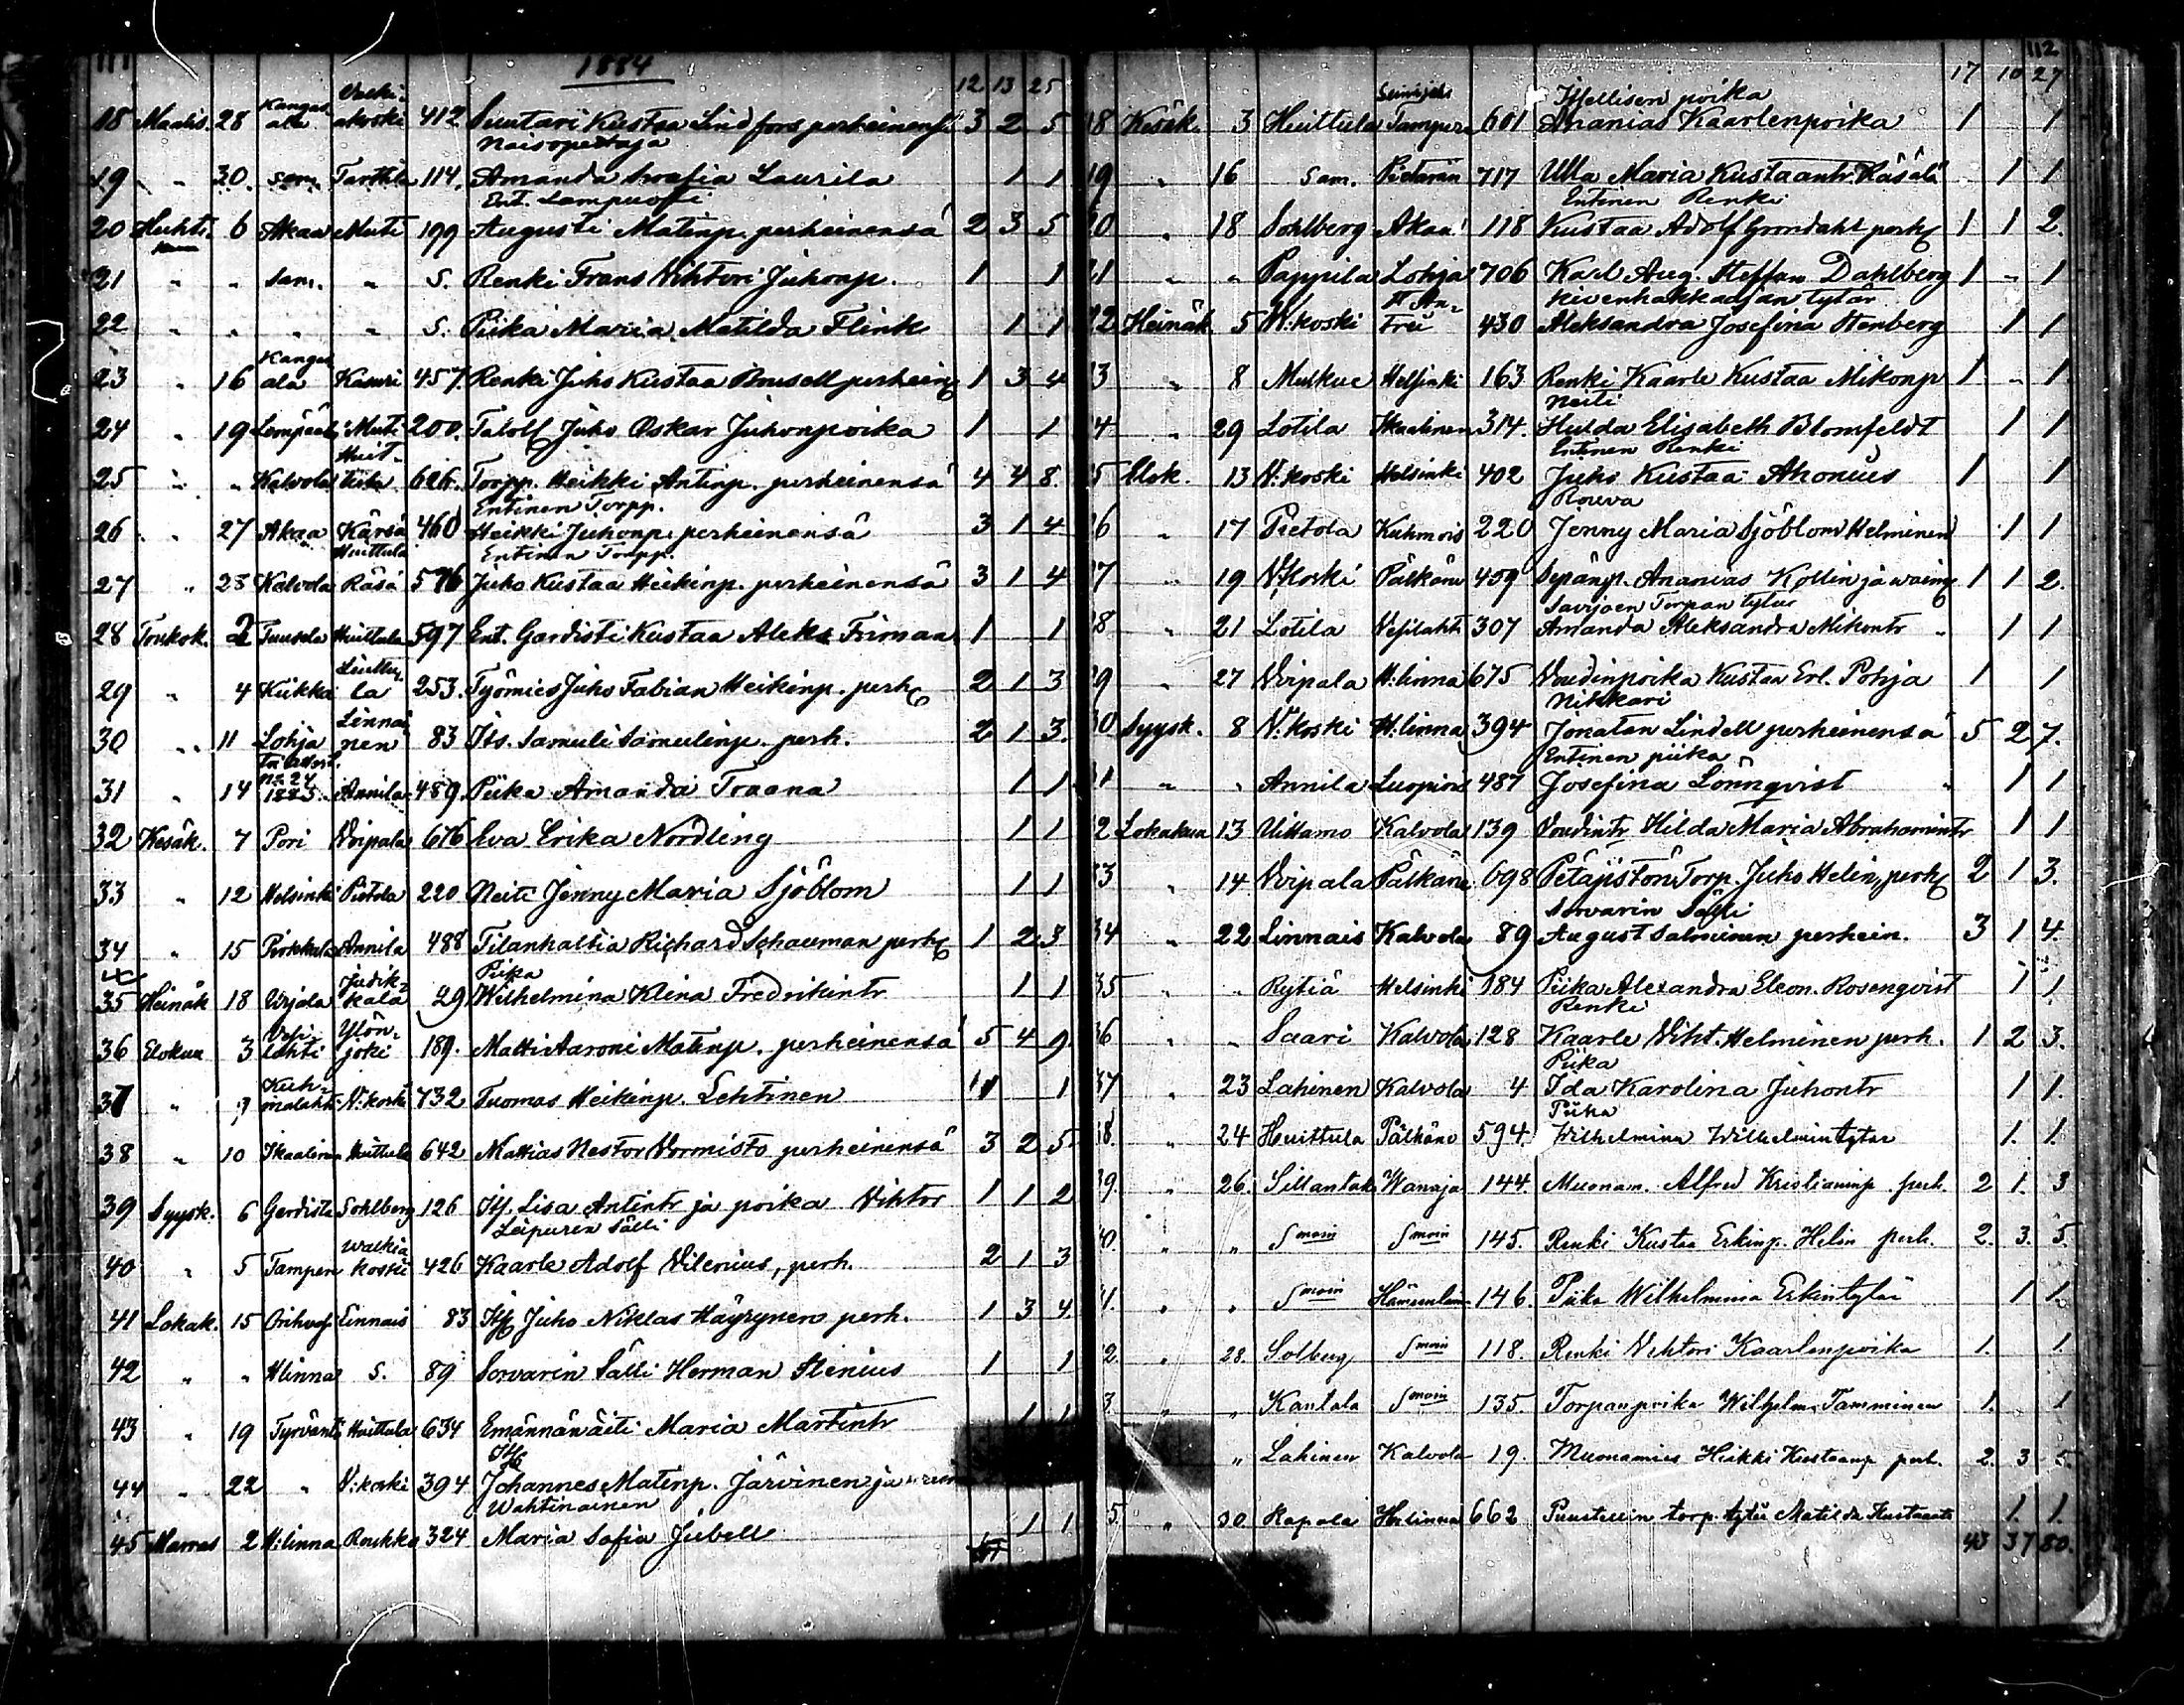 111
1884
12 13 25
Kangas Valki
18 Maalis. 28 ala akoski 412 Suutari Kustaa Lindfors perheinensä 3 2 5
Naisopettaja
19 " 30 sam. Tarttila 114. Amanda Soafia Laurila 1 1
Ent. Lampuoti
20 Huhti 6 Akaa Muti 199 Augusti Matinp. perheinensä 2 3 5
21 " " sam. " S. Renki Frans Vihtori Juhonp. 1 1
22 " " " " S. Piika Maria Matilda Flink 1 1
Kangas
23 " 16 ala Kasuri 457 Renki Juho Kustaa Bousell perhein 1 3 4
24 " 19 Lempäälä Muti 200. Taloll. Juho Oskar Juhonpoika 1 1
Huit-
25 " " Kalvola tula 626. Torpp. Heikki Antinp. perheinensä 4 4 8.
Entinen Torpp.
26 " 27 Akaa Kärsä 460 Heikki Juhonp. perheinensä 3 1 4
Huittula Entinen Torpp.
27 " 28 Kalvola Räsä 576 Juho Kustaa Heikinp. perheinensä 3 1 4
28 Toukok. 2 Tuusula Huittula 597 Ent. Gardisti Kustaa Aleks Friman 1 1
Linttu
29 " 4 Kukkia la 253. Työmies Juho Fabian Heikinp. perh 2 1 3
Linnai
30 " 11 Lohja nen 83 Its. Samuli Samulinp. perh. 2 1 3.
No 24
31 " 14 1885. Annila 489. Piika Amanda Traana 1 1
32 Kesäk. 7 Pori Voipala 676 Eva Erika Nordling 1 1
33 " 12 Helsinki Pietola 220 Neiti Jenny Maria Sjöblom 1 1
34 " 15 Pirkkala Annila 488 Tilanhaltia Richard Schauman perh 1 2 3
Jutik- Piika
35 Heinäk 18 Urjala kala 29 Wilhelmina Klina Fredrikintr 1 1
Vesi- Ylön-
36 Elokuu 3 lahti joki 189. Matti Aaroni Matinp. perheinensä 5 4 9
Kuh-
37 " 9 malahti V:koski 732 Tuomas Heikinp. Lehtinen 1 1
38 " 10 Ikaalinen Huittula 642 Mattias Nestor Vormisto perheinensä 3 2 5
39 Syysk. 6 Gardista Sohlberg 126 Its. Lisa Antintr ja poika Vihtor 1 1 2
Walkia Leipurin Sälli
40 " 5 Tampere koski 426 Kaarle Adolf Vilenius, perh. 2 1 3
41 Lokak. 15 Orihvesi Linnais 83 Its Juho Niklas Häyrynen perh. 1 3 4.
42 " " Hlinna S. 89 Sorvarin Sälli Herman Stenius 1 1
43 " 19 Tyrväntö Huittula 634 Emännänäiti Maria Martintr 1 1
Its
44 " 22 " V:koski 394 Johannes Matinp. Järvinen ja
Wahtinainen
45 Marras 2 H:linna Roukko 324 Maria Sofia Jubell 1 1
112
17 10 27
Itsellisen poika
18 Kesäk. 3 Huittula Tampere 601 Ananias Kaarlenpoika 1 1
19 " 16 Sam. Pietarin 717 Ulla Maria Kustaantr. Räsälä 1 1
Entinen Renki
20 " 18 Sohlberg Akaa 118 Kustaa Adolf Grondahl perh 1 1 2.
21 " " Pappila Lohja 706 Karl Aug. Steffan Dahlberg 1 " 1
Kivenhakkaajan tytär
22 Heinäk 5 V:koski 430 Aleksandra Josefina Stenberg 1 1
23 " 8 Mulkue Helsinki 163 Renki Kaarle Kustaa Mikonp 1 " 1
Neiti
24 " 29 Lotila Ikaalinen 314. Hulda Elisabeth Blomfeldt 1 1
Entinen Renki
25 Elok. 13 V:koski Helsinki 402 Juho Kustaa Ahonius 1 1
Rouva
26 " 17 Pietola Kuhmois 220 Jenny Maria Sjöblom Helminen 1 1
27 " 19 V:koski Pälkäne 409 Sepänp. Ananias Kollin ja waim 1 1 2
Savijoen Torpan tytär
28 " 21 Lotila Vesilahti 307 Amanda Aleksandra Mikontr " 1 1
29 " 27 Voipala H:linna 675 Voudinpoika Kustaa Erl. Pohja 1 1
Nikkari
30 Syysk. 8 V:koski H:linna 394 Jonatan Lindell perheinensä 5 2 7.
Entinen piika
31 " " Annila Luopiois 487 Josefina Lönnqvist " 1 1
32 Lokakuu 13 Uittamo Kalvola 139 Voudintr Hilda Maria Abrahamintr 1 1
33 " 14 Voipala Pälkäne 698 Petäjistön Torp. Juho Helin, perh 2 1 3.
Sorvarin Sälli
34 " 22 Linnais Kalvola 89 August Salminen perhein. 3 1 4.
35 " " Rytiä Helsinki 184 Piika Alexandra Eleon. Rosenqvist 1 1.
Renki
36 " " Saari Kalvola 128 Kaarle Viht. Helminen perh. 1 2 3.
Piika
37 " 23 Lahinen Kalvola 4 Ida Karolina Juhontr 1 1.
Piika
38. " 24 Huittula Pälkäne 594. Wilhelmina Wilhelmintytär 1. 1.
39. " 26. Sillantaka Wanaja 144. Muonam. Alfred Kristianinp perh. 2 1. 3
40. " " Smoin Smoin 145. Renki Kustaa Erkinp. Helin perh. 2. 3. 5.
41. " " Smoin Hämeenlinn 146. Piika Wilhelmina Erkintytär 1 1.
42. " 28. Solberg Smoin 118. Renki Vihtori Kaarlenpoika 1. 1.
43. " " Kantala Smoin 135. Torpanpoika Wilhelm Tamminen 1. 1
" Lahinen Kalvola 19. Muonamies Heikki Kustaanp perh. 2. 3 5
45. " 30 Rapola H:linna 662 Puustellin torp. tytär Matilda Kustaantr 1. 1.
43 37 80.